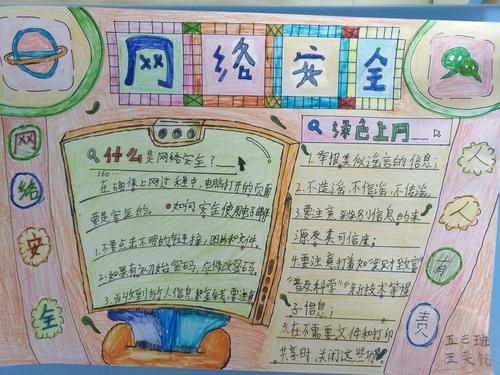 网络安全
网络安全
什么是网络安全?
360
在确保上网过程中,电脑打开的页面
要是安全的。 如何安全使用电子邮件
1.不要点击不明的链接,图片和文件。
2.如果有初始密码,应修改密码。
3.当收到与个人信息和金钱
绿色上网
1.举报类似谣言的信息;
2.不造谣,不信谣,不传谣。
3.要注意辨别信息的来
源及其可信度;
4.要注意打着如"发财致富"
"普及科学""新技术
子信息;
5.在不需要文件和打印
共享时,关闭这些功
人人有责
五三班
王